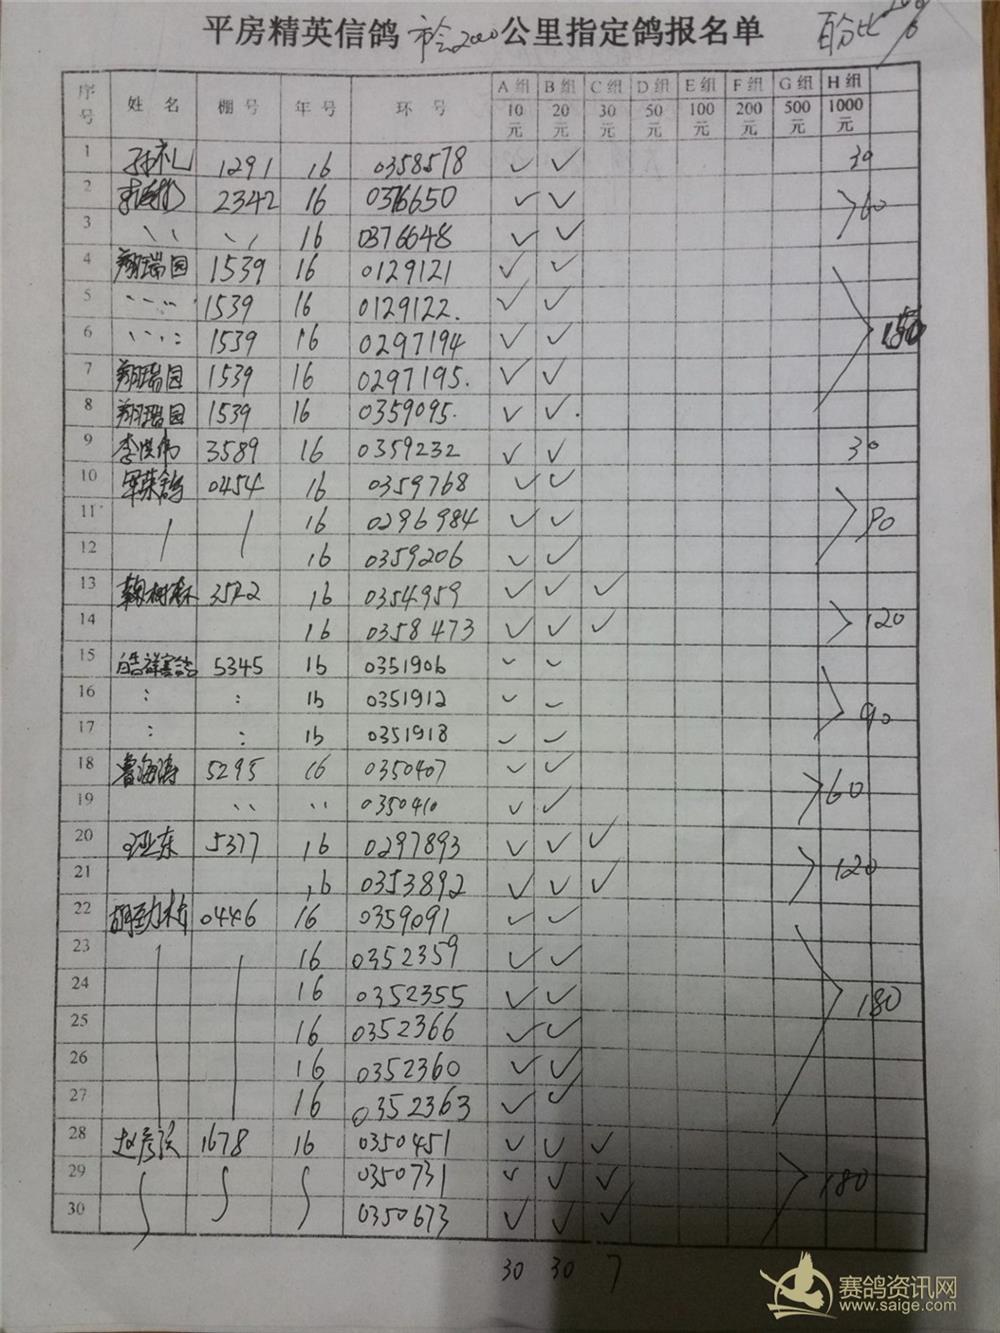 平房精英信鸽 市会200 公里指定鸽报名单 百分比
序号 姓名 棚号 年号 环号 A组 10元 B组 20元 C组 30元 D组 50元 E组 100元 F组 200元 G组 500元 H组 1000元
1 孙礼 1291 16 0358578 ✓ ✓ 30
2 2342 16 0376650 ✓ ✓ 60
3 〃 〃 16 0376648 ✓ ✓
4 翔瑞园 1539 16 0129121 ✓ ✓
5 〃 1539 16 0129122. ✓ ✓
6 〃 1539 16 0297194 ✓ ✓ 150
7 翔瑞园 1539 16 0297195. ✓ ✓
8 翔瑞园 1539 16 0359095. ✓ ✓.
9 李洪伟 3589 16 0359232 ✓ ✓ 30
10 军荣鸽 0454 16 0359768 ✓ ✓
11 16 0296984 ✓ ✓ 90
12 16 0359206 ✓ ✓
13 鞠树林 3522 16 0354959 ✓ ✓ ✓
14 16 0358473 ✓ ✓ ✓ 120
15 皓祥赛鸽 5345 16 0351906 ✓ ✓
16 : : 16 0351912 ✓ ✓ 90
17 : : 16 0351918 ✓ ✓
18 鲁海涛 5295 16 0350407 ✓ ✓
19 〃 〃 0350410 ✓ ✓ 60
20 5377 16 0297893 ✓ ✓ ✓
21 16 0353892 ✓ ✓ ✓ 120
22 胡劲松 0446 16 0359091 ✓ ✓
23 16 0352359 ✓ ✓
24 16 0352355 ✓ ✓ 180
25 16 0352366 ✓ ✓
26 16 0352360 ✓ ✓
27 16 0352363 ✓ ✓
28 赵彦滨 1678 16 0350451 ✓ ✓ ✓
29 0350731 ✓ ✓ ✓ 180
30 0350673 ✓ ✓ ✓
30 30 7
赛鸽资讯网
www.saige.com